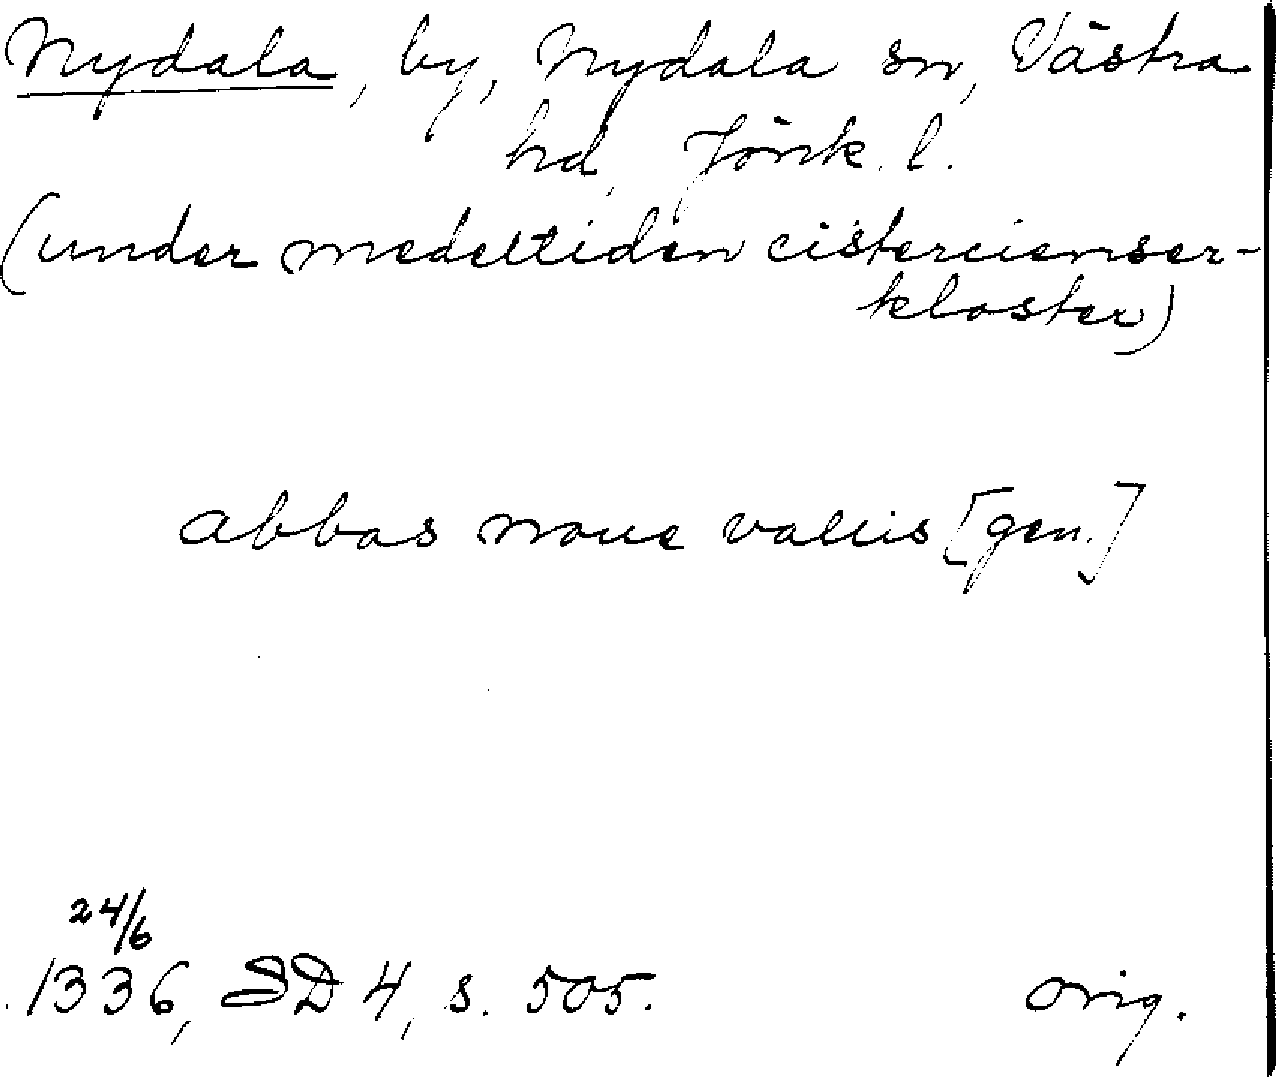 Nydala, by, Nydala sn, Västra
hd, Jönk. l.
(under medeltiden cistercienser-
kloster)
abbas noue vallis [gen.]
24/6
1336, SD 4, s. 505. orig.